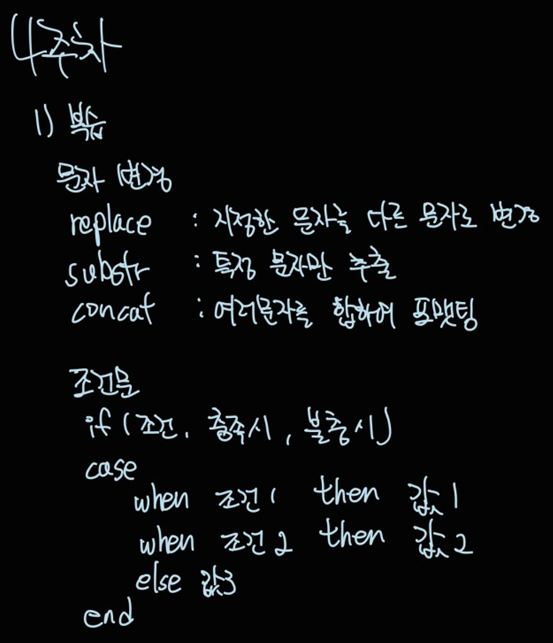 4주차
1) 복습
문자 변경
replace : 지정한 문자를 다른 문자로 변경
substr : 특정 문자만 추출
concat : 여러문자를 합하여 포맷팅
조건문
if (조건, 충족시, 불충시)
case
when 조건1 then 값1
when 조건2 then 값2
else 값3
end